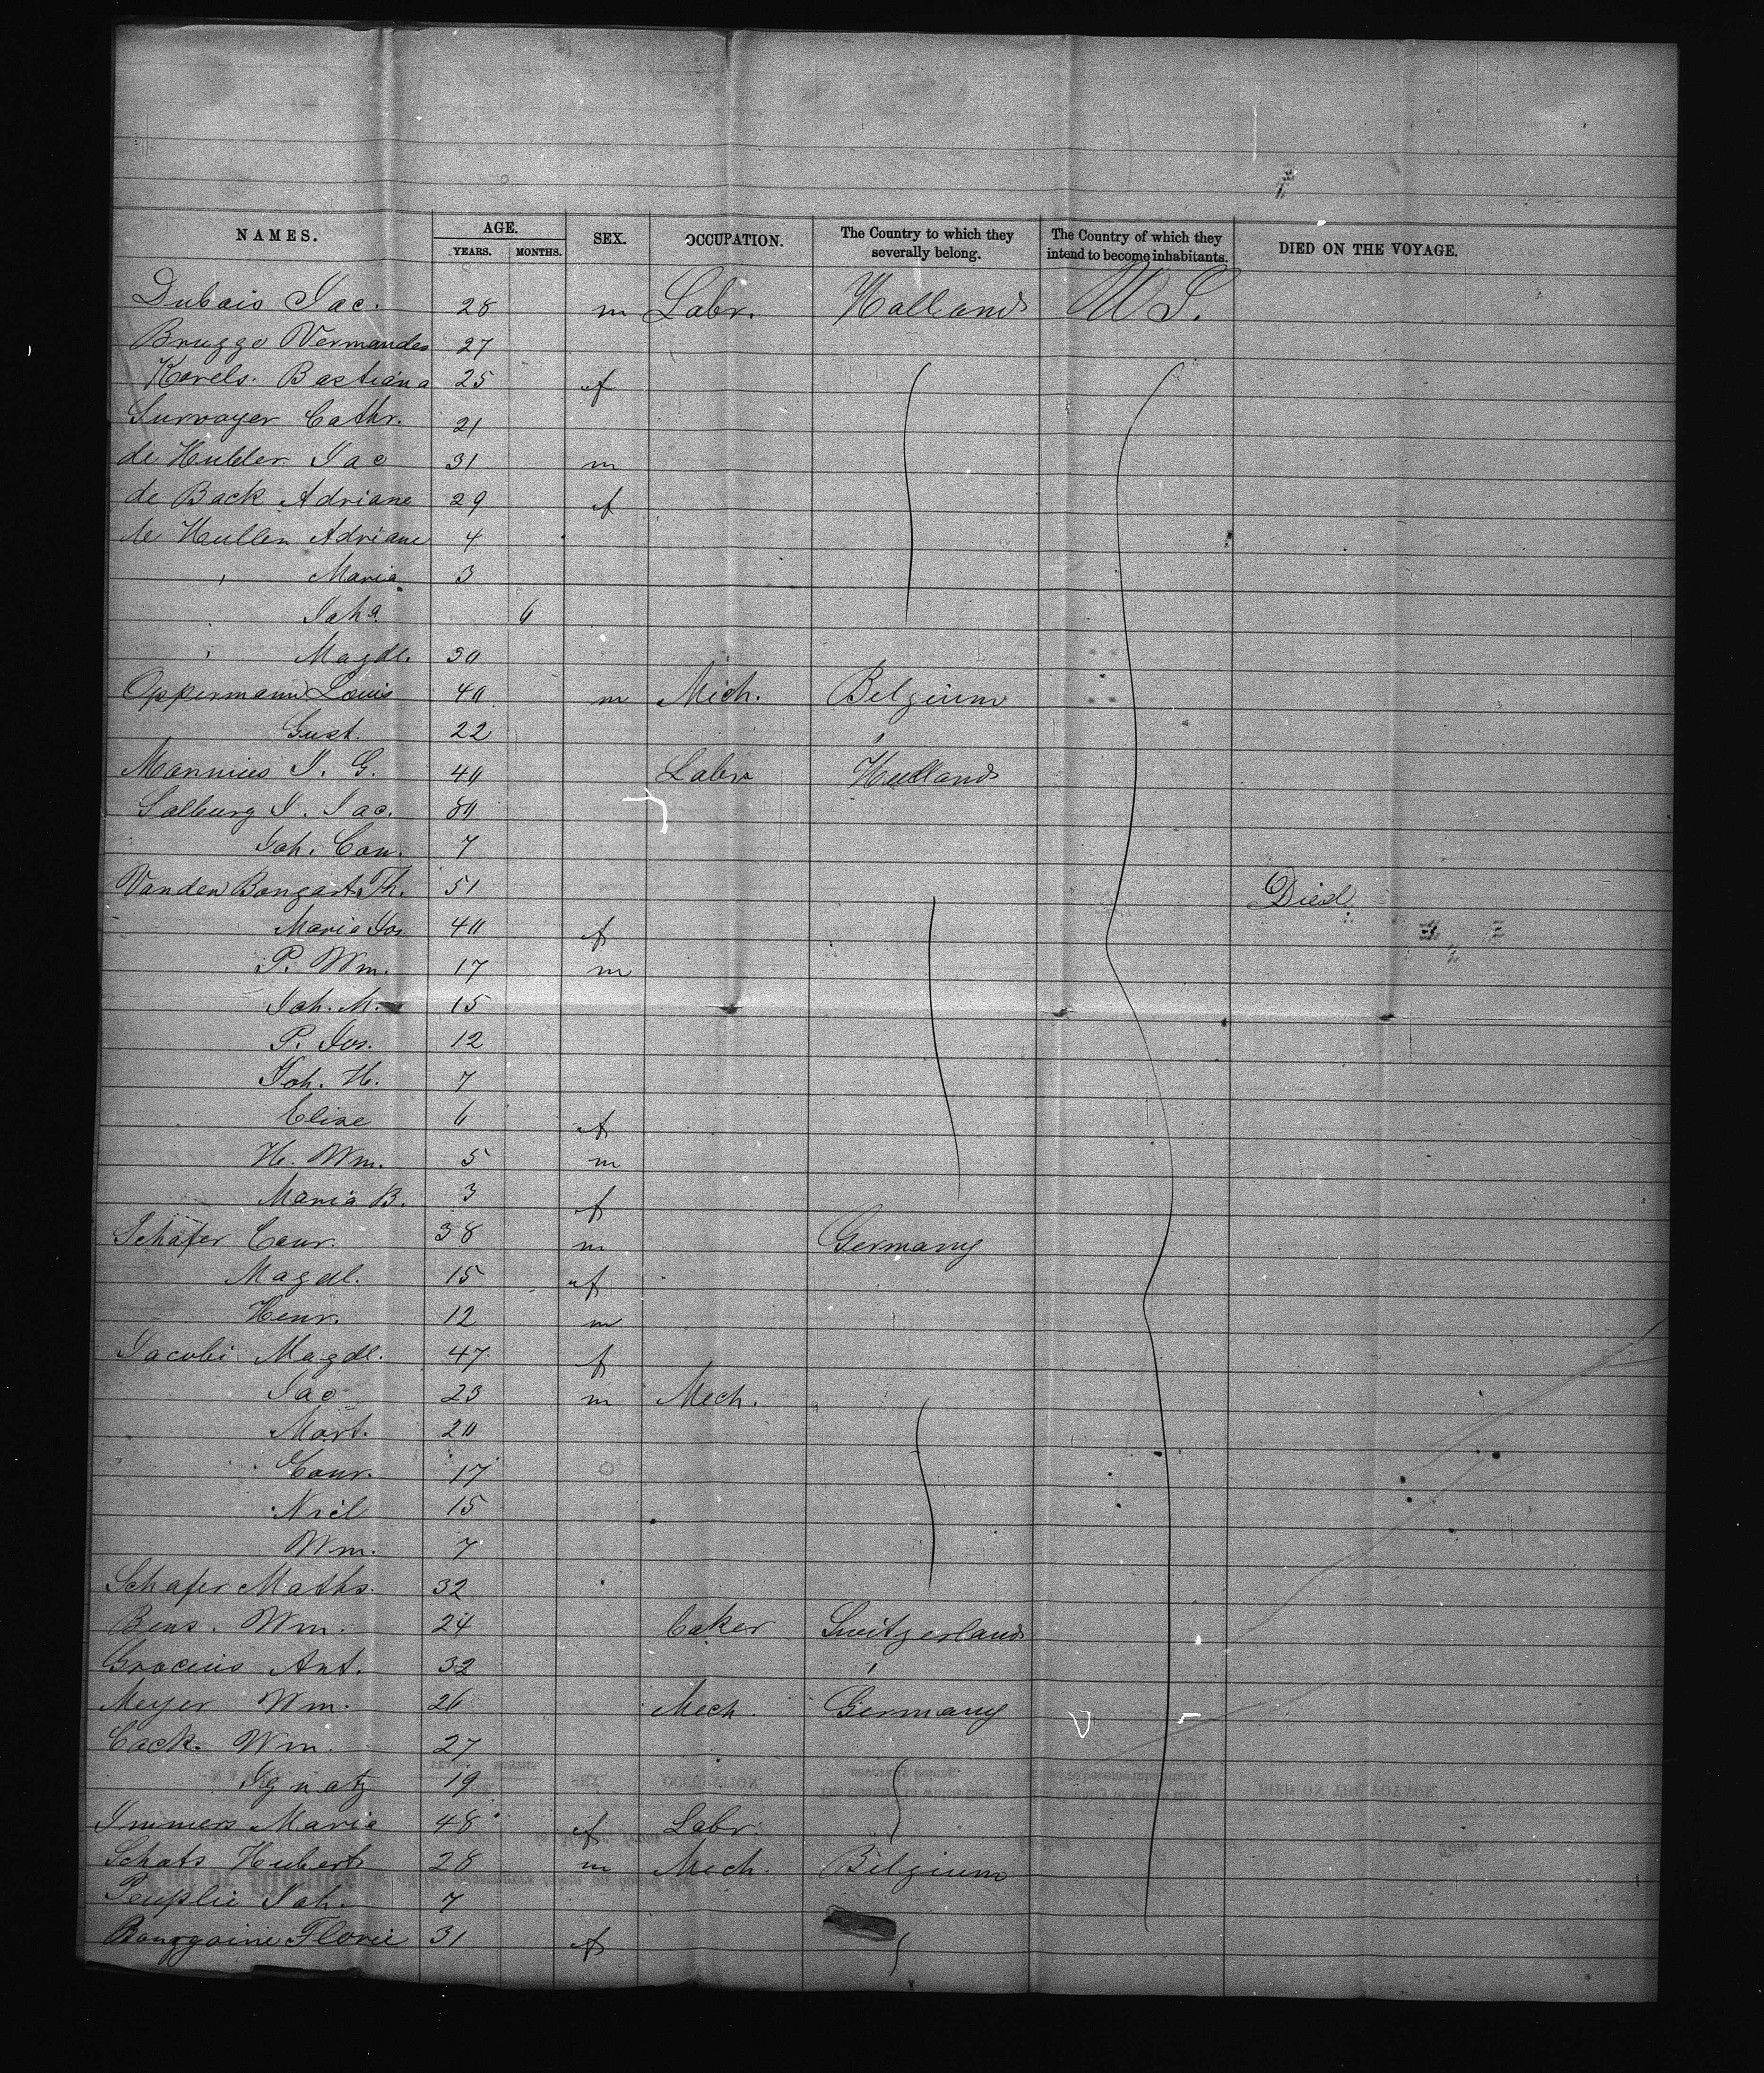 NAMES. AGE. YEARS. MONTHS. SEX. OCCUPATION. The Country to which they severally belong. The Country of which they intend to become inhabitants. DIED ON THE VOYAGE.
Dubois Jac. 28 m Labr. Holland U S.
Brugge Vermandes 27
Karels. Bastiana 25 f
Survoyer Cathr. 21
de Hulder Jac 31 m
de Back Adriane 29 f
de Hullen Adriane 4
" Maria 3
" Joha 6
" Magdl. 30
Oppermann Louis 40 m Mich. Belgium
Gust. 22 "
Mannius J. G. 40 Labr Holland
Salburg J. Jac.
Joh. Con. 7
Vanden Bongart Th. 51 Died
Maria Jos. 40 f
P. Wm. 17 m
Joh. M. 15
P. Jos. 12
Joh. H. 7
Elise 6 f
H. Wm. 5 m
Maria B. 3 f
Schäfer Conr. 38 m Germany
Magdl. 15 f
Henr. 12 m
Jacobi Magdl. 47 f
Jac 23 m Mech.
Mart. 20
Conr. 17
Nicl 15
Wm. 7
Schafer Maths. 32
Bens. Wm. 24 baker Switzerland
Gracius Ant. 32 "
Meyer Wm. 26 Mech. Germany
Cack. Wm. 27
Ignatz 19
Immers Maria 48 f Labr.
Schats Hubert 28 m Mech. Belgium
Peuplie Joh. 7
Bourgoine Florie 31 f